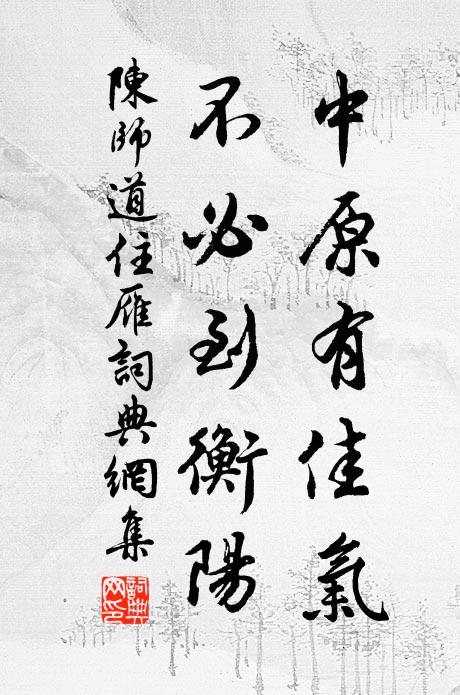 中原有佳氣
不必到衡陽
陳師道住雁詞典網集
詞典網印